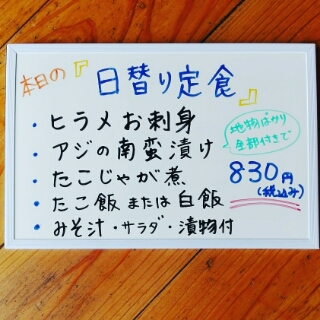 本日の『日替り定食』
・ヒラメお刺身
・アジの南蛮漬け
・たこじゃが煮
・たこ飯 または 白飯
・みそ汁・サラダ・漬物付
地物ばかり
全部付きで
830円
(税込み)